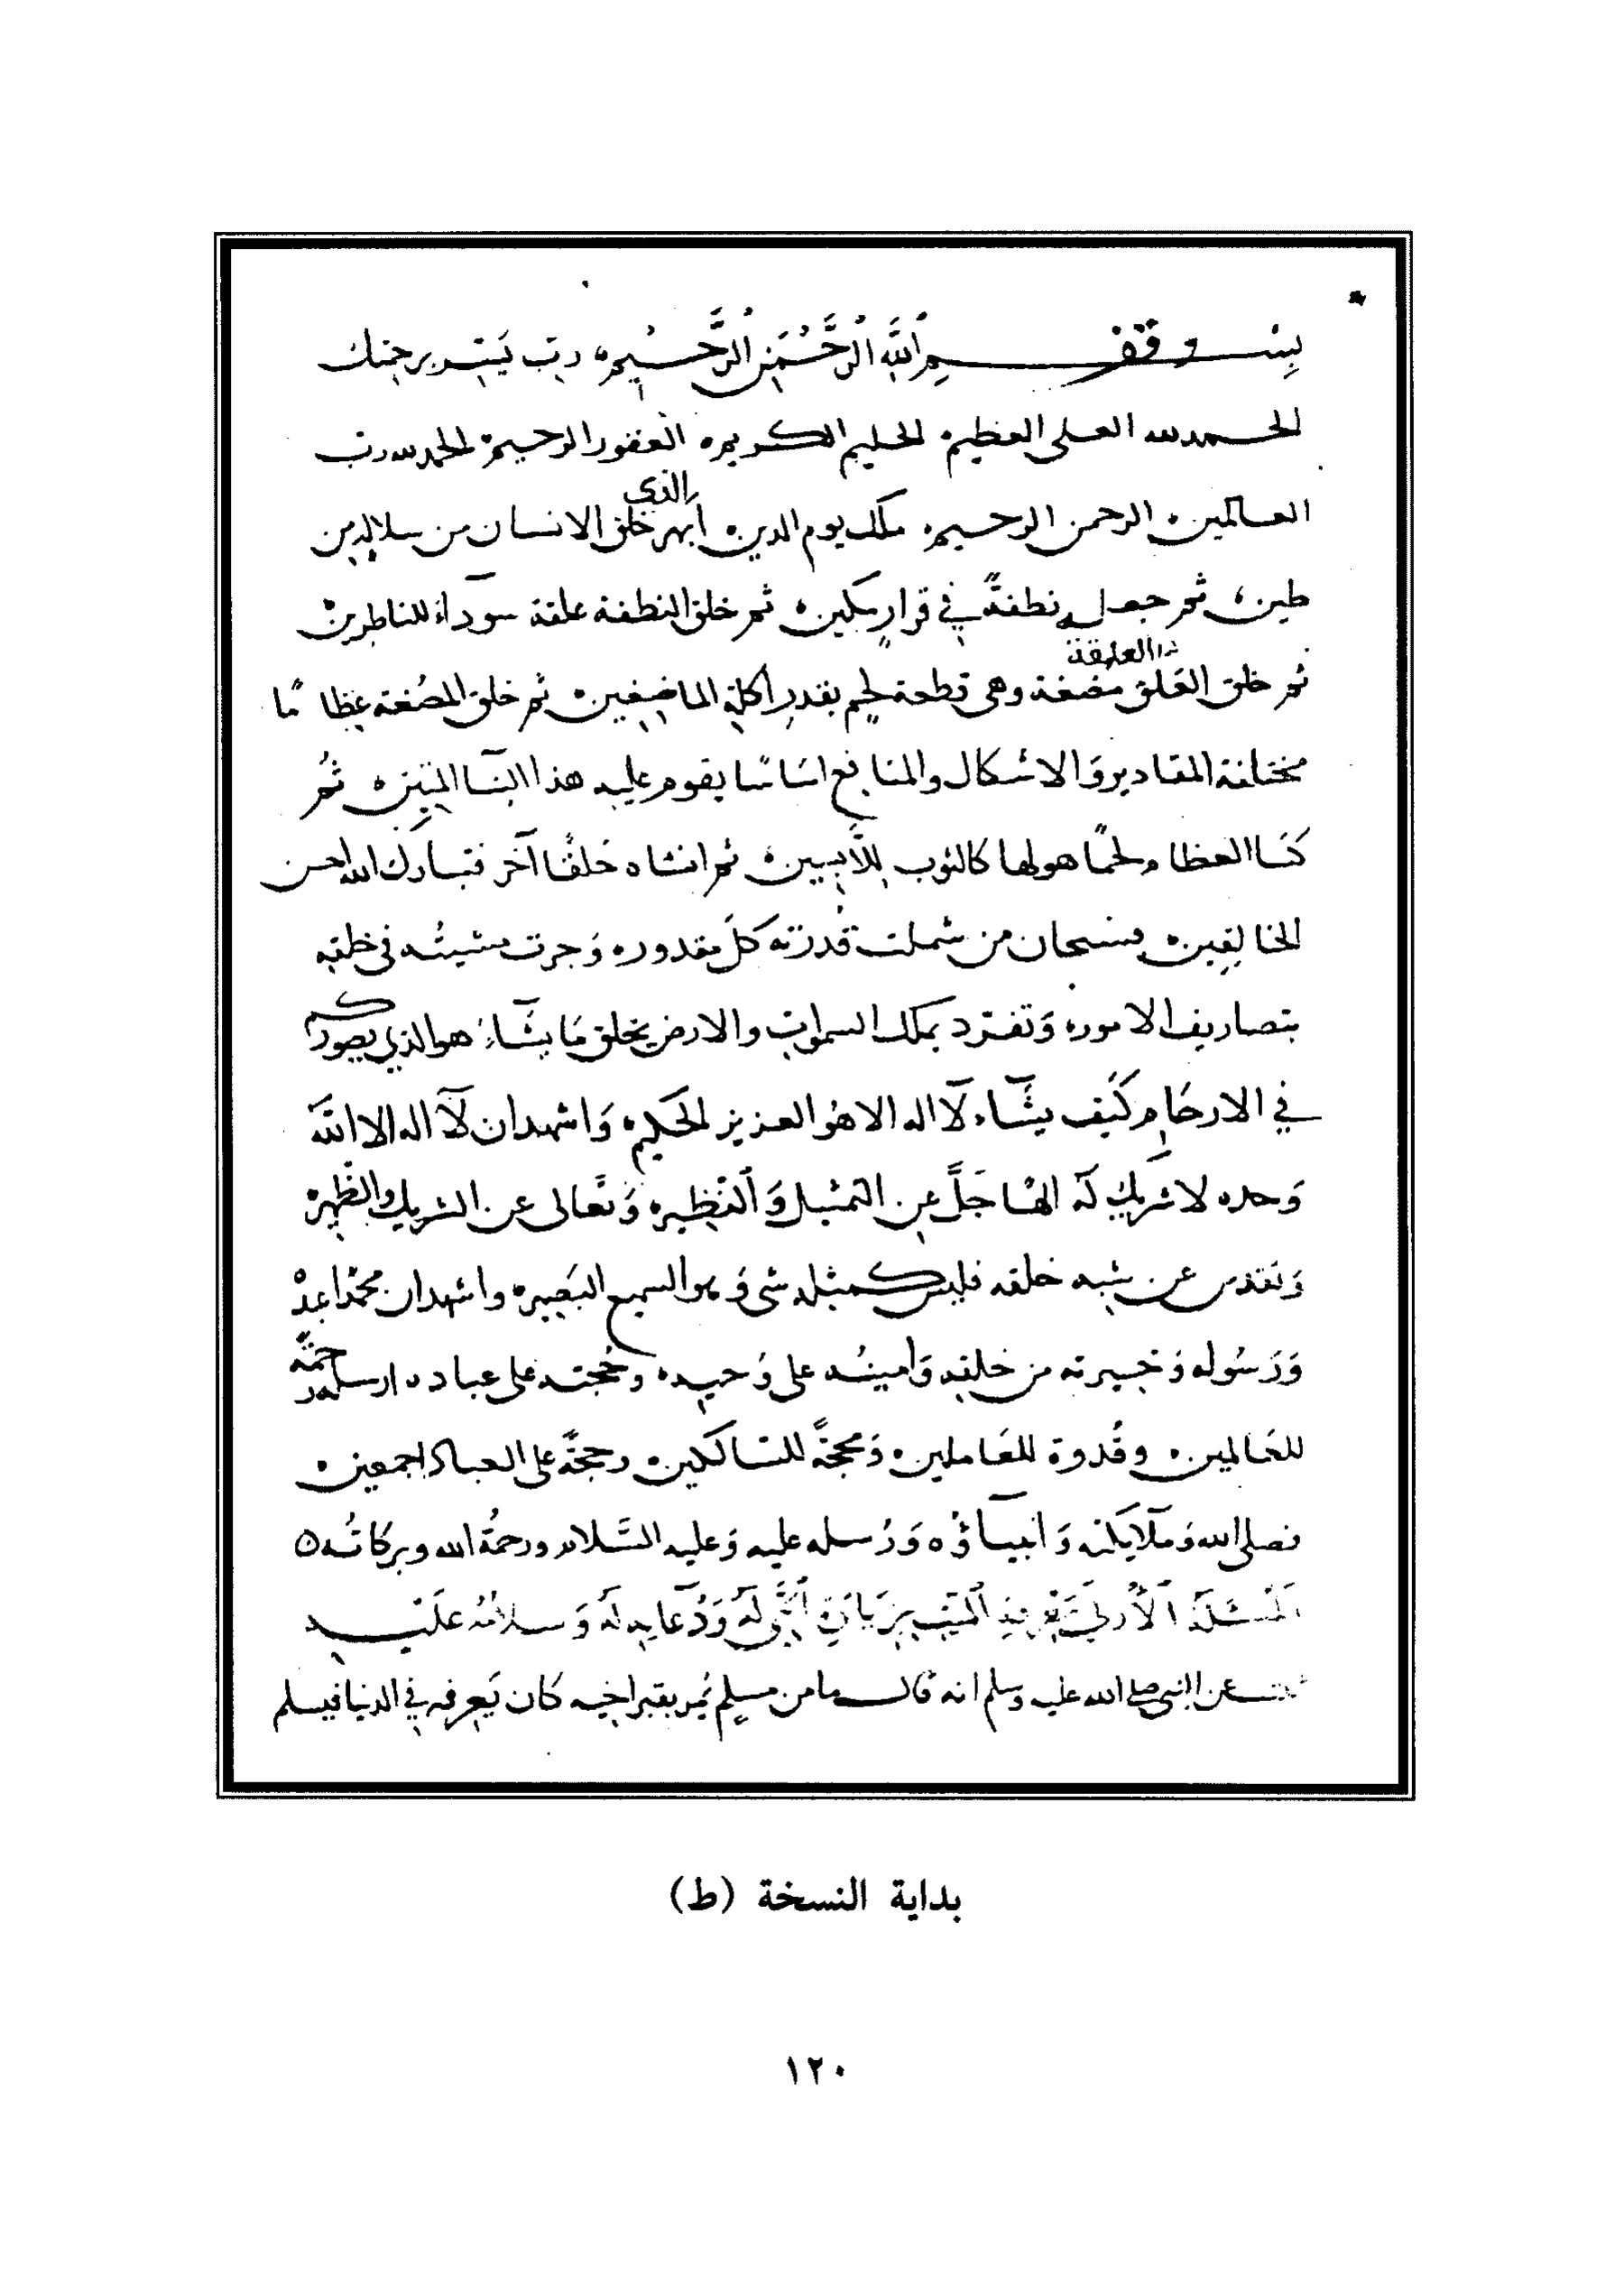 بِسْمِ اللَّهِ الرَّحْمَنِ الرَّحِيمِ رب يَسِّر برحمتك
وقف
الحمد لله العلى العظيم الحليم الكريم الغفور الرحيم الحمد لله رب
العالمين الرحمن الرحيم ملك يوم الدين خلق الانسان من سلالة من
الذي
طين ثم جعله نطفةً في قرارٍ مكين ثم خلق النطفة علقة سودآء للناظرين
ثم خلق العَلق مضغة وهى قطعة لحم بقدر اكلة الماضغين ثم خلق المضغة عظامًا
العلقة
مختلفة المقادير وَالاشكال والمنافع اسَاسًا يقوم عليه هذا البنآ المبين ثُم
كسَا العظام لحمًا هو لها كالثوب للَّابسين ثم انشاه خلقًا آخر فتبارك الله احسن
الخالقين فسبحان من شملت قُدرَته كلَ مقدور وَجرت مشيئتُه فى خلقه
بتصاريف الامور وَتفرد بملك السموات والارض يخلق مَا يشَآءُ هو الذي يصوركم
في الارحَام كَيف يشَآء لَآ اله الا هُو العزيز الحكيم وَاشهد ان لَآ اله الا اللَّه
وَحده لا شريك لَه الهًا جَلَّ عن المثيل وَالنَّظير وَتَعالى عن الشريك والظهير
وَتقدس عن شبه خلقه فليس كمثله شى وَهو السميع البَصير واشهد ان محمدًا عبدُه
وَرَسُوله وَخيرته من خلقه وَامينُه على وَحيه وحُجته على عباده ارسله رحمةً
للعَالمين وقُدوة للعَاملين وَمحجَّةً للسَالكين وحجةً على العباد اجمعين
فصلى الله وَملَآيكته وَانبيآؤُه وَرُسله عليه وَعليه السَّلام ورحمةُ الله وبركاتُه
المسْئلَة الْأُولى لَهُ وَدُعَايه لَهُ وَسلامُه علَيه
عن النبى صلى الله عليه وسلم انه قال ما من مسلم يمر بقبر اخيه كان يَعرفه في الدنيا فيسلم
بداية النسخة (ط)
١٢٠